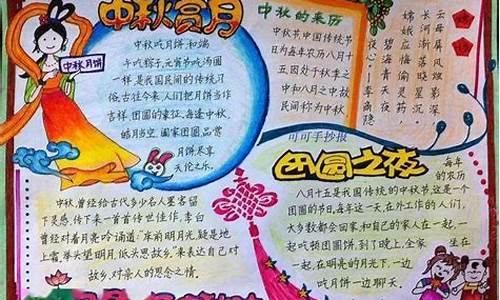 中秋赏月
中秋月饼
中秋吃月饼和端
午吃粽子、元宵节吃汤圆
一样是我国民间的传统习
俗。古往今来,人们把月饼当作
吉祥、团圆的象征。每逢中秋,
皓月当空,阖家团圆,品赏
月饼,尽享
天伦之乐。
中秋的来历
中秋节,中国传统节
日,为每年农历八月十
五,因处于秋季之
中和八月之中,故
民间称为中秋。
嫦娥
云母屏风烛影深,
长河渐落晓星沉。
嫦娥应悔偷灵药,
碧海青天夜夜心。
李商隐
可可手抄报
团圆之夜
每年
的农历
八月十五是我国传统的中秋节,这是一个
团圆的节日,每年这一天,在外工作的人们,
大多数都会回家,和自己的家人在一起,一
起吃顿团圆饼,到了晚上,全家坐在
一起,在明亮的月光下,一边
吃月饼一边聊天。
中秋,曾经给古代多少名人墨客留
下灵感,传下来一首首传世佳作,李白
曾经对着月亮吟诵道:“床前明月光,疑是地
上霜,举头望明月,低头思故乡。”来表达自己对
故乡、对亲人的思念之情。